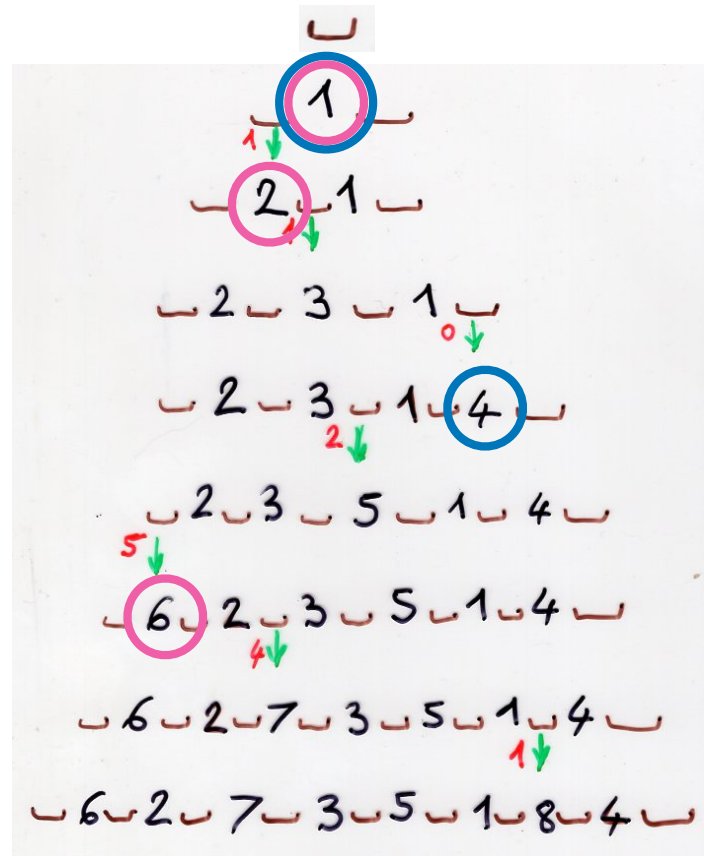 ␣
␣ 1 ␣
1
␣ 2 ␣ 1 ␣
1
␣ 2 ␣ 3 ␣ 1 ␣
0
␣ 2 ␣ 3 ␣ 1 ␣ 4 ␣
2
␣ 2 ␣ 3 ␣ 5 ␣ 1 ␣ 4 ␣
5
␣ 6 ␣ 2 ␣ 3 ␣ 5 ␣ 1 ␣ 4 ␣
4
␣ 6 ␣ 2 ␣ 7 ␣ 3 ␣ 5 ␣ 1 ␣ 4 ␣
1
␣ 6 ␣ 2 ␣ 7 ␣ 3 ␣ 5 ␣ 1 ␣ 8 ␣ 4 ␣